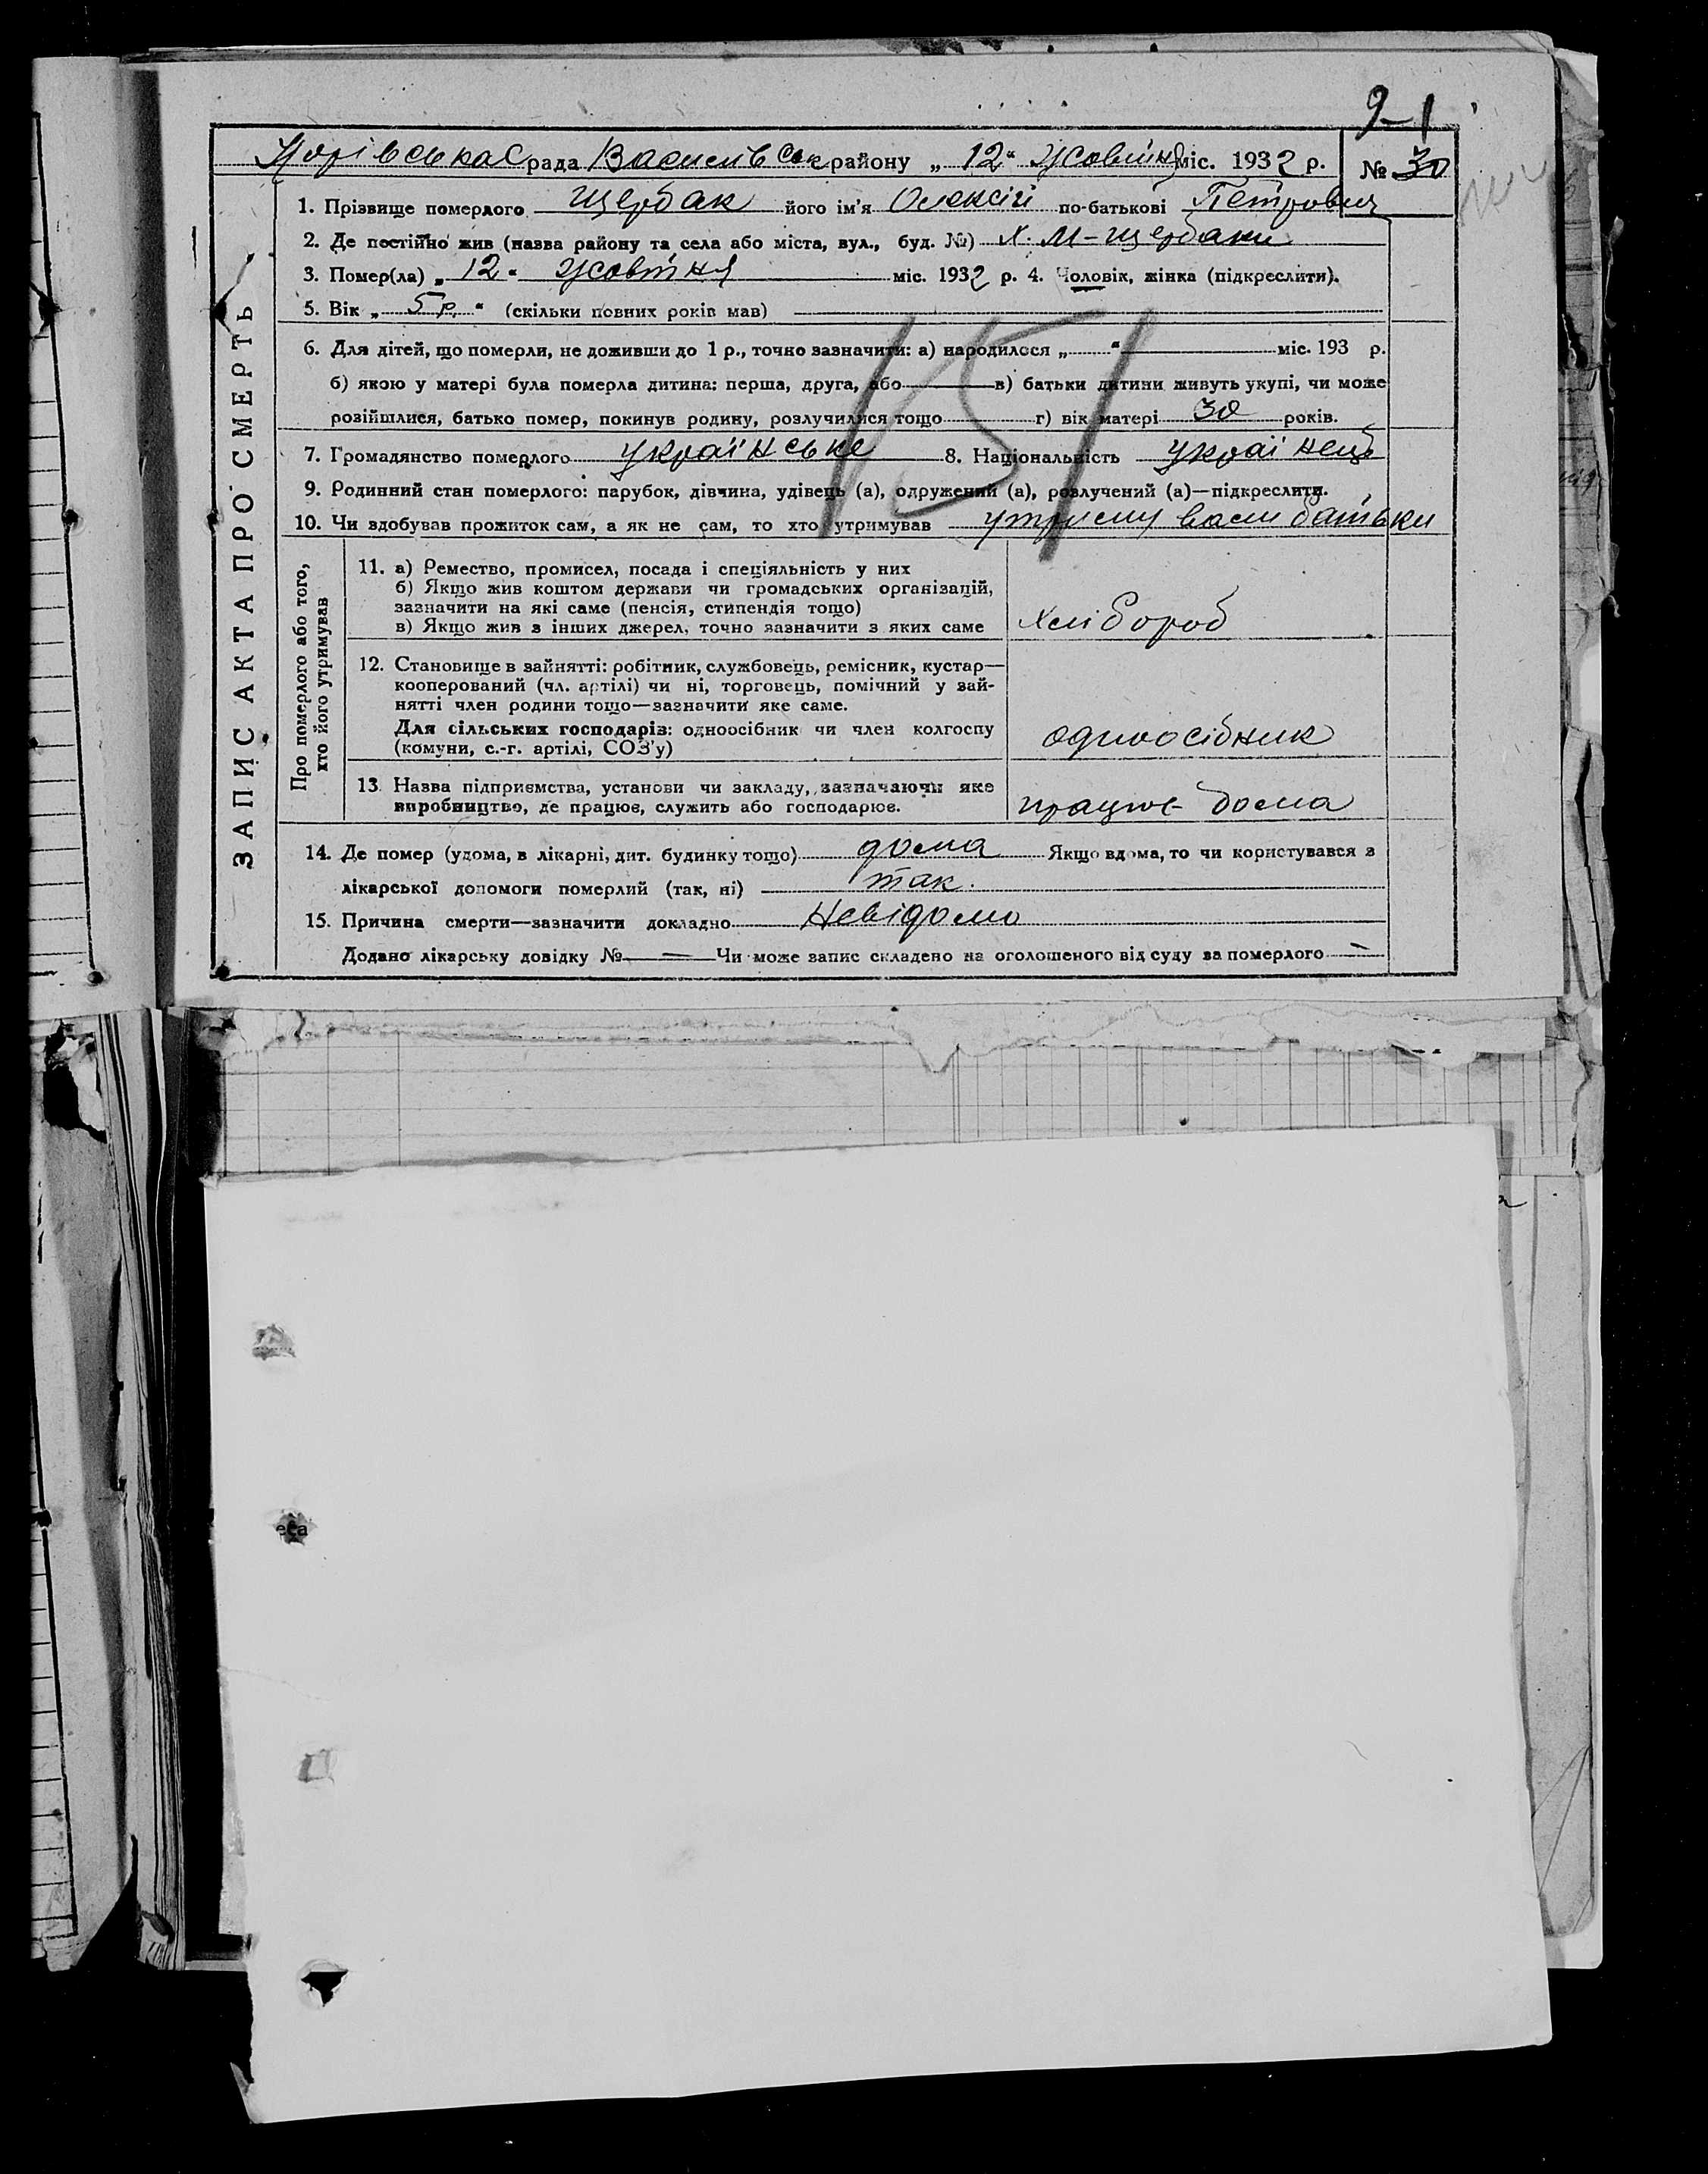 9-1
рада Васильівськ району „ 12 " Жовтня міс. 1932 р. № 30
1. Прізвище померлого Щербак його ім'я Олексій по-батькові Петрович
2. Де постійно жив (назва району та села або міста, вул., буд. №) х. М-Щербаки
3. Помер(ла) „ 12 " Жовтня міс. 1932 р. 4. Чоловік, жінка (підкреслити).
5. Вік „ 5 р. " (скільки повних років мав)
6. Для дітей, що померли, не доживши до 1 р., точно зазначити: а) народилося „ " міс. 193 р.
б) якою у матері була померла дитина: перша, друга, або в) батьки дитини живуть укупі, чи може
розійшлися, батько помер, покинув родину, розлучилися тощо г) вік матері 30 років.
7. Громадянство померлого українське 8. Національність українець
9. Родинний стан померлого: парубок, дівчина, удівець (а), одружений (а), розлучений (а)—підкреслити.
10. Чи здобував прожиток сам, а як не сам, то хто утримував утримували батьки
151
ЗАПИС АКТА ПРО СМЕРТЬ
Про померлого або того,
хто його утримував
11. а) Ремество, промисел, посада і спеціяльність у них
б) Якщо жив коштом держави чи громадських організацій,
зазначити на які саме (пенсія, стипендія тощо)
в) Якщо жив з інших джерел, точно зазначити з яких саме
хлібороб
12. Становище в зайнятті: робітник, службовець, ремісник, кустар—
кооперований (чл. артілі) чи ні, торговець, помічний у зай-
нятті член родини тощо—зазначити яке саме.
Для сільських господарів: одноосібник чи член колгоспу
(комуни, с.-г. артілі, СОЗ'у)
одноосібник
13. Назва підприємства, установи чи закладу, зазначаючи яке
виробництво, де працює, служить або господарює.
працює дома
14. Де помер (удома, в лікарні, дит. будинку тощо) дома Якщо вдома, то чи користувався з
лікарської допомоги померлий (так, ні) так.
15. Причина смерти—зазначити докладно Невідомо
Додано лікарську довідку № — Чи може запис складено на оголошеного від суду за померлого —